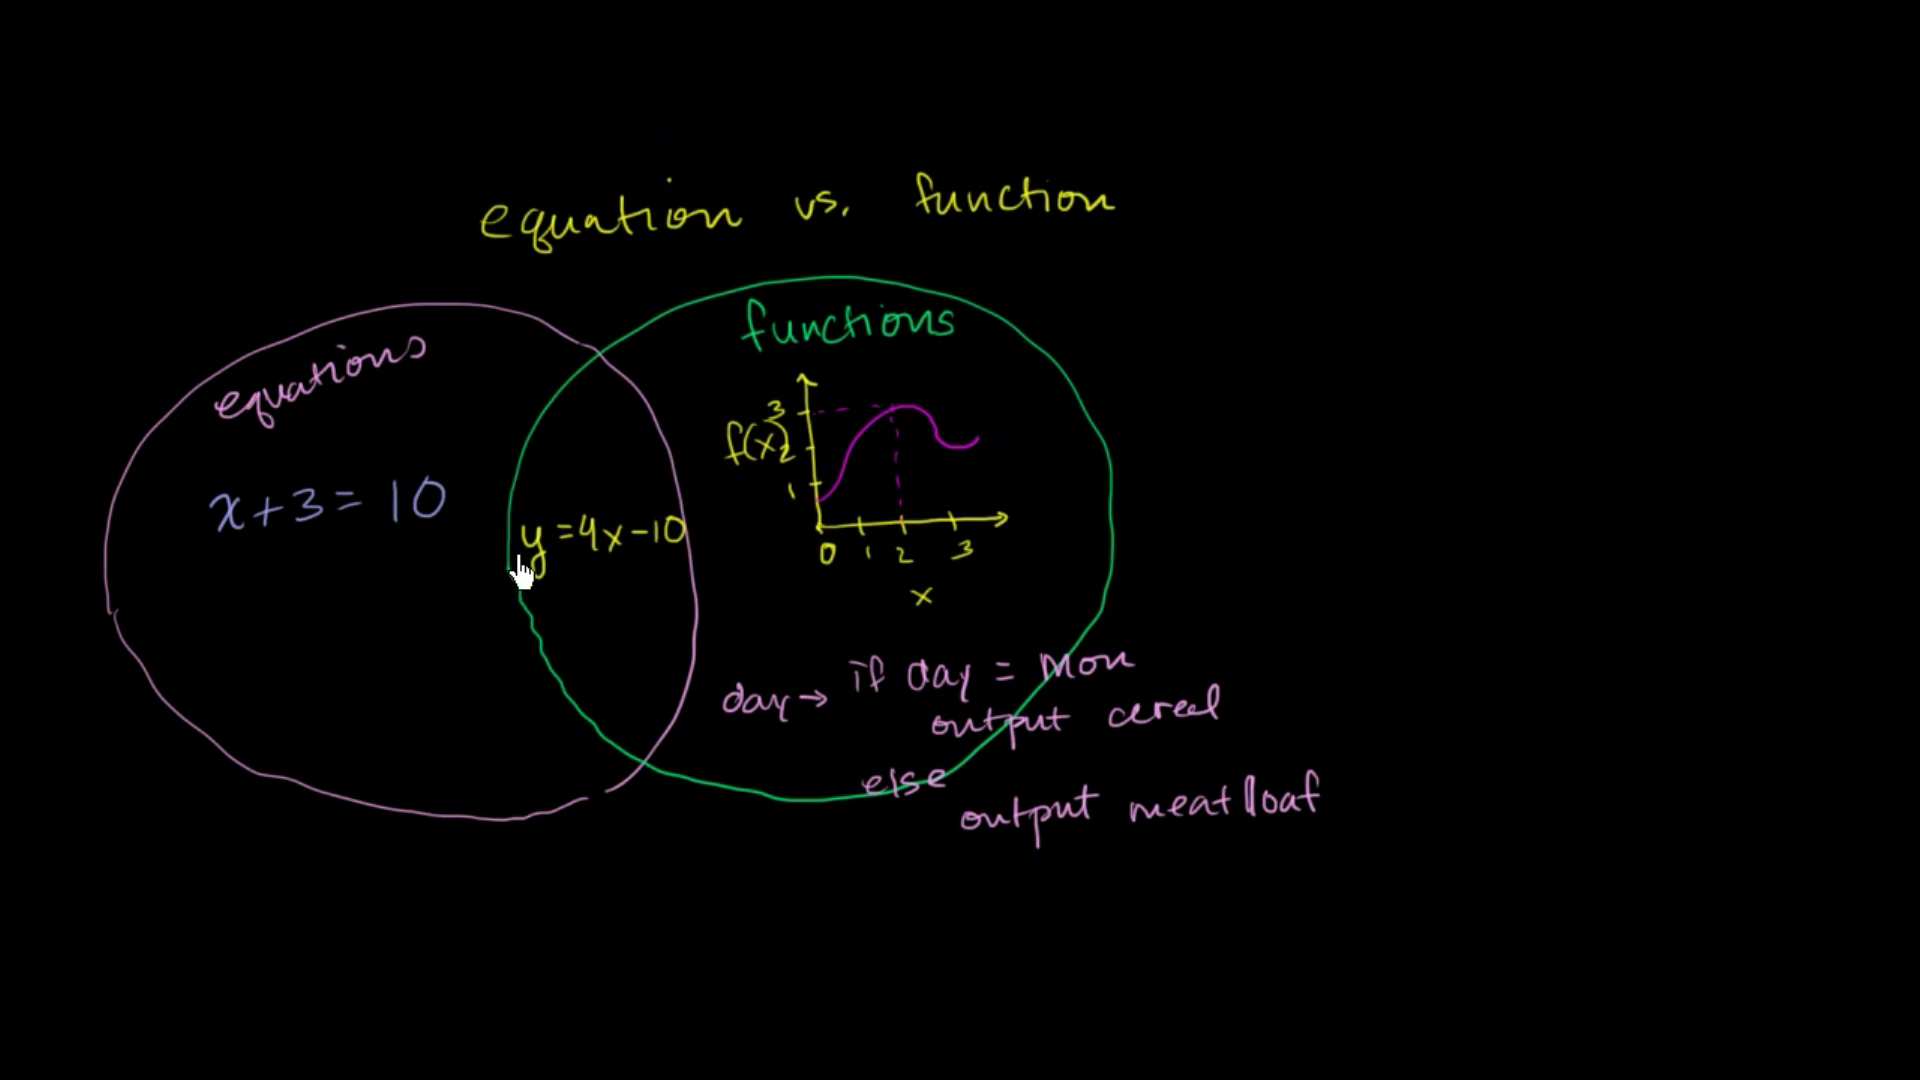 equation vs. function
functions
equations
x+3=10
y=4x-10
f(x)
3
2
1
0 1 2 3
x
day→ if day = Mon
output cereal
else
output meatloaf